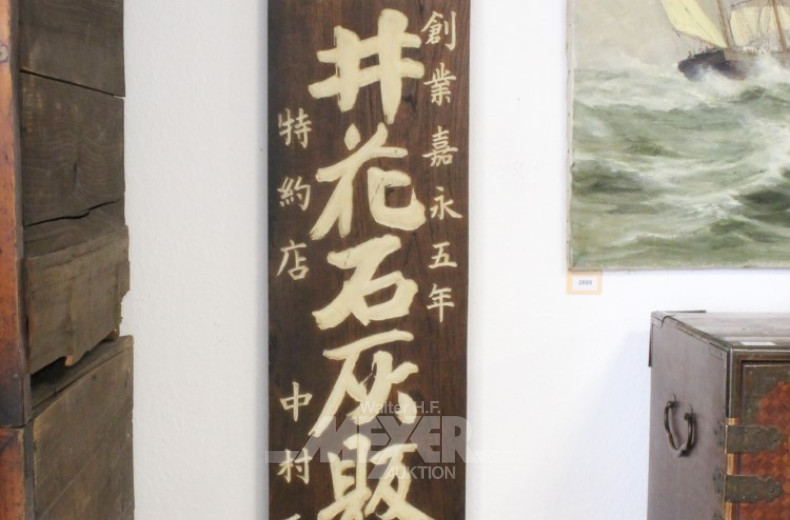 創業嘉永五年
井花石灰販
特約店
中村
Walter H.F.
MEYER
AUKTION